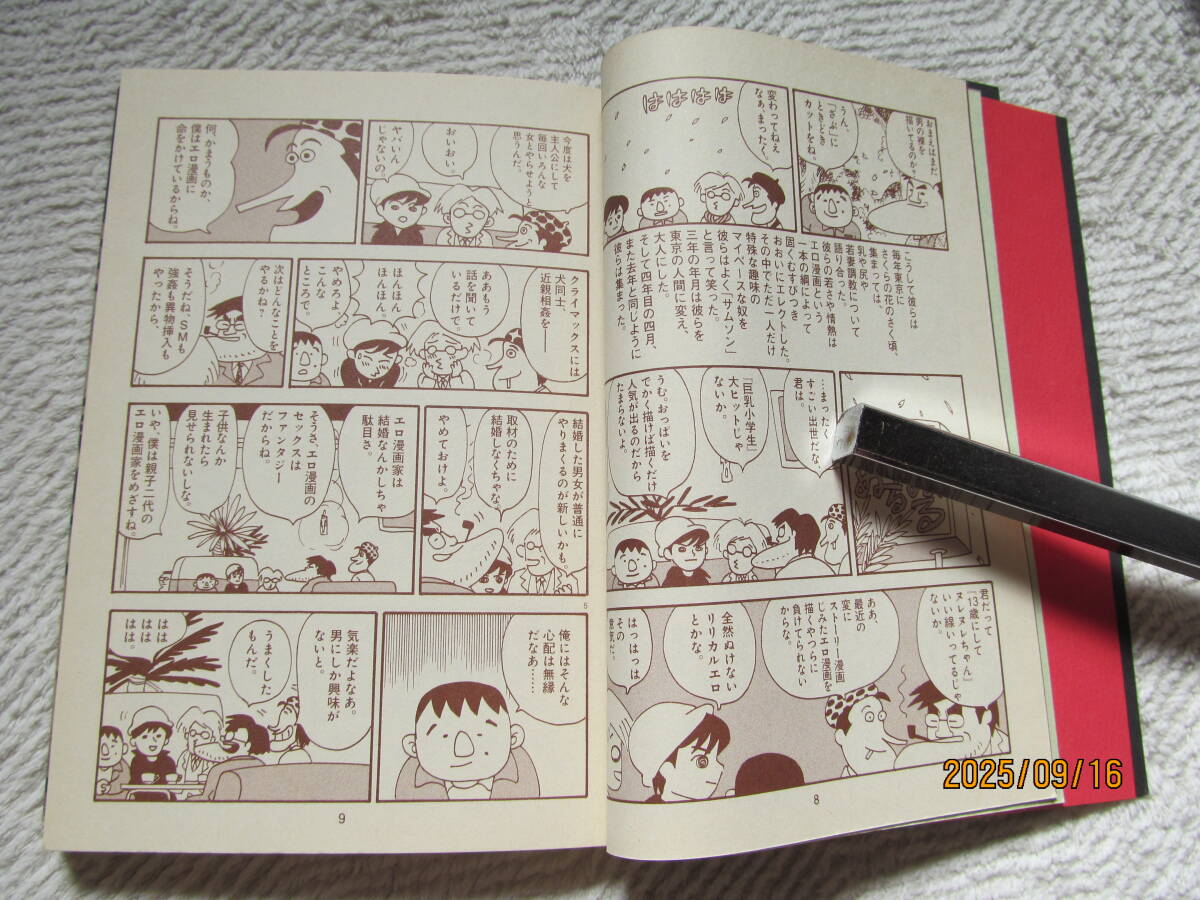 おまえはまだ
男の裸を
描いてるのか。
うん、
「さぶ」に
ときどき
カットをね。
変わってねえ
なぁ、まったく。
はははは
こうして彼らは
毎年東京に
さくらの花のさく頃、
集まっては
乳や尻や
若妻調教について
語り合った。
彼らの若さや情熱は
エロ漫画という
一本の綱によって
固くむすびつき
おおいにエレクトした。
その中でただ一人だけ
特殊な趣味の
マイペースな奴を
彼らはよく「サムソン」
と言って笑った。
三年の年月は彼らを
東京の人間に変え、
大人にした。
そして四年目の四月、
また去年と同じように
彼らは集まった。
…まったく
すごい出世だな、
君は。
「巨乳小学生」
大ヒットじゃ
ないか。
うむ。おっぱいを
でかく描けば描くだけ
人気が出るのだから
たまらないよ。
君だって
「13歳にして
ヌレヌレちゃん」
いい線いってるじゃ
ないか。
ああ、
最近の
変に
ストーリー漫画
じみたエロ漫画を
描くやつらに
負けてられない
からな。
全然ぬけない
リリカルエロ
とかな。
はっはっは
その
8
今度は犬を
主人公にして
毎回いろんな
女とやらせようと
思うんだ。
おいおい。
ヤバいん
じゃないの。
何、かまうものか、
僕はエロ漫画に
命をかけているからね。
クライマックスには
犬同士、
近親相姦を──
ああもう
話を聞いて
いるだけで。
ほんほん
ほんほん。
やめろよ、
こんな
ところで。
次はどんなことを
やるかね?
そうだね、SMも
強姦も異物挿入も
やったから、
結婚した男女が普通に
やりまくるのが新しいかも。
取材のために
結婚しなくちゃな。
やめておけよ。
エロ漫画家は
結婚なんかしちゃ
駄目さ。
そうさ、エロ漫画の
セックスは
ファンタジー
だからね。
子供なんか
生まれたら
見せられないしな。
いや、僕は親子二代の
エロ漫画家をめざすね。
5
俺にはそんな
心配は無縁
だなあ……
気楽だよなあ。
男にしか興味が
ないと。
うまくした
もんだ。
はは
はは
はは。
9
2025/09/16